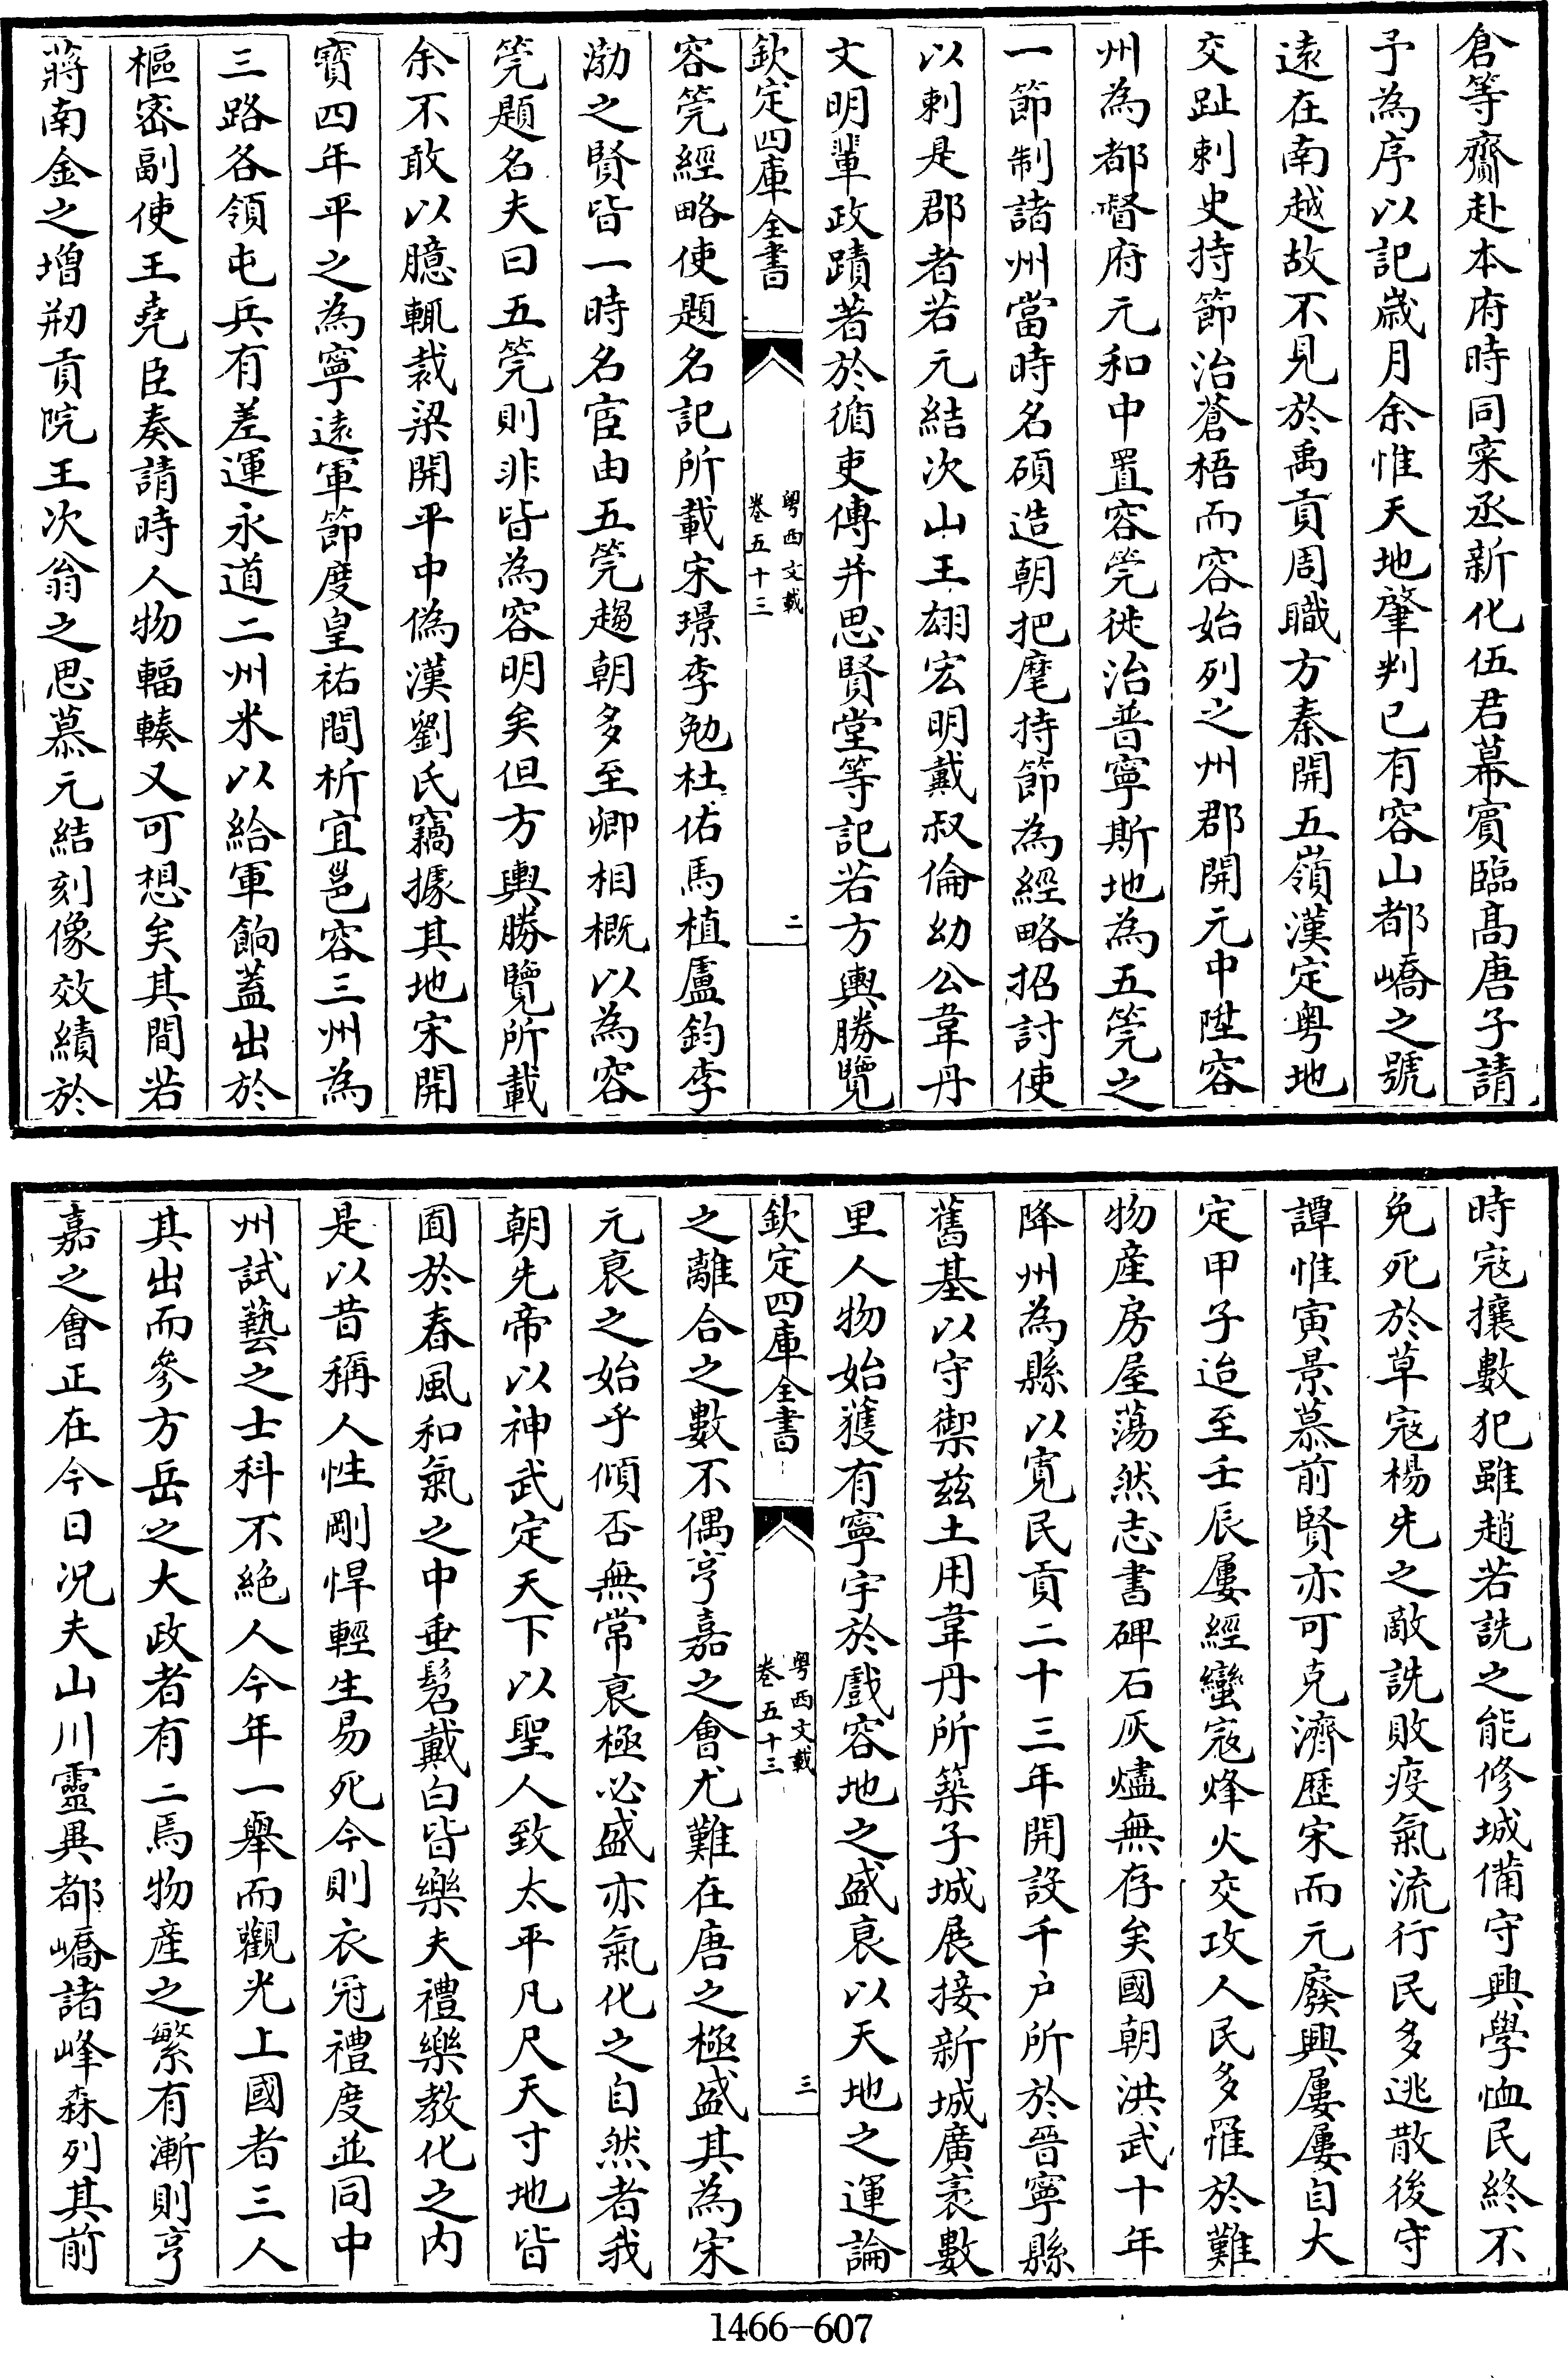 倉等齎赴本府時同寀丞新化伍君幕賓臨髙唐子請
予為序以記歳月余惟天地肇判已有容山都嶠之號
逺在南越故不見於禹貢周職方秦開五嶺漢定粤地
交趾刺史持節治蒼梧而容始列之州郡開元中陞容
州為都督府元和中置容筦徙治普寧斯地為五筦之
一節制諸州當時名碩造朝把麾持節為經略招討使
以刺是郡者若元結次山王翃宏明戴叔倫幼公韋丹
文明輩政蹟著於循吏傳并思賢堂等記若方輿勝覽
欽定四庫全書
粤西文載
卷五十三
二
容筦經略使題名記所載宋璟李勉杜佑馬植盧鈞李
渤之賢皆一時名宦由五筦趨朝多至卿相概以為容
筦題名夫曰五筦則非皆為容明矣但方輿勝覽所載
余不敢以臆輒裁梁開平中偽漢劉氏竊據其地宋開
寳四年平之為寧逺軍節度皇祐間析宜邕容三州為
三路各領屯兵有差運永道二州米以給軍餉蓋出於
樞密副使王堯臣奏請時人物輻輳又可想矣其間若
蔣南金之增剏貢院王次翁之思慕元結刻像效績於
時冦攘數犯雖趙若詵之能修城備守興學恤民終不
免死於草冦楊先之敵詵敗疫氣流行民多逃散後守
譚惟寅景慕前賢亦可克濟歴宋而元廢興屢屢自大
定甲子迨至壬辰屢經蠻冦烽火交攻人民多罹於難
物産房屋蕩然志書碑石灰燼無存矣國朝洪武十年
降州為縣以寛民貢二十三年開設千户所於晉寧縣
舊基以守禦兹土用韋丹所築子城展接新城廣袤數
里人物始獲有寧宇於戲容地之盛衰以天地之運論
欽定四庫全書
粤西文載
卷五十三
三
之離合之數不偶亨嘉之會尤難在唐之極盛其為宋
元衰之始乎傾否無常衰極必盛亦氣化之自然者我
朝先帝以神武定天下以聖人致太平凡尺天寸地皆
囿於春風和氣之中垂髫戴白皆樂夫禮樂教化之内
是以昔稱人性剛悍輕生易死今則衣冠禮度並同中
州試藝之士科不絶人今年一舉而觀光上國者三人
其出而參方岳之大政者有二焉物産之繁有漸則亨
嘉之會正在今日况夫山川靈異都嶠諸峰森列其前
1466-607